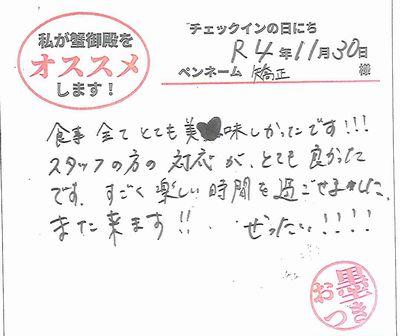 私が蟹御殿を
オススメ
します！
チェックインの日にち
R4年11月30日
ペンネーム 矯正 様
食事 全て とても美♥味しかったです!!!
スタッフの方の 対応が、とても良かった
です。すごく楽しい時間を過ごせました。
また来ます!! ぜったい!!!!
お墨きつ